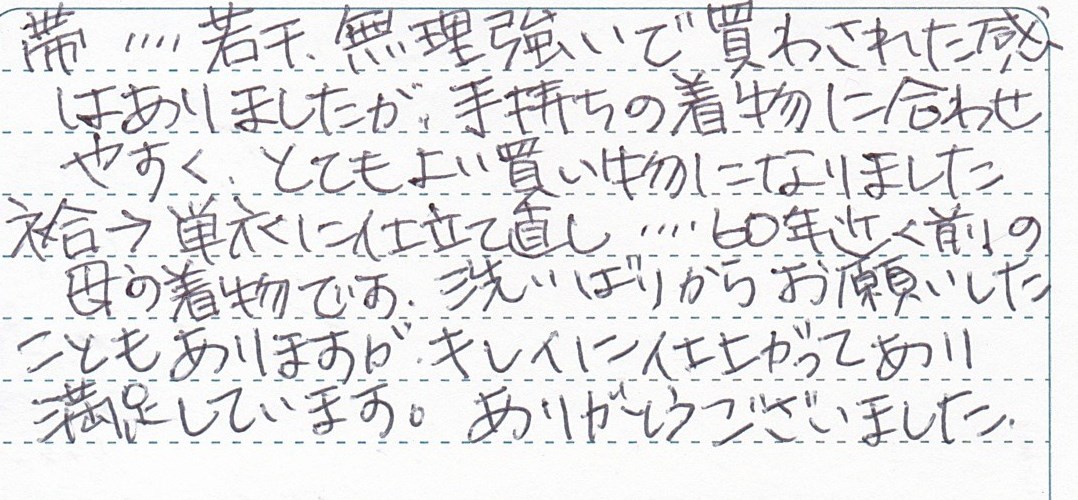 帯 ‥‥ 若干、無理強いで買わされた感
はありましたが、手持ちの着物に合わせ
やすく、とてもよい買い物になりました
袷→単衣に仕立て直し ‥‥ 60年近く前の
母の着物です、洗いばりからお願いした
こともありますが、キレイに仕上がってあり
満足しています。ありがとうございました.